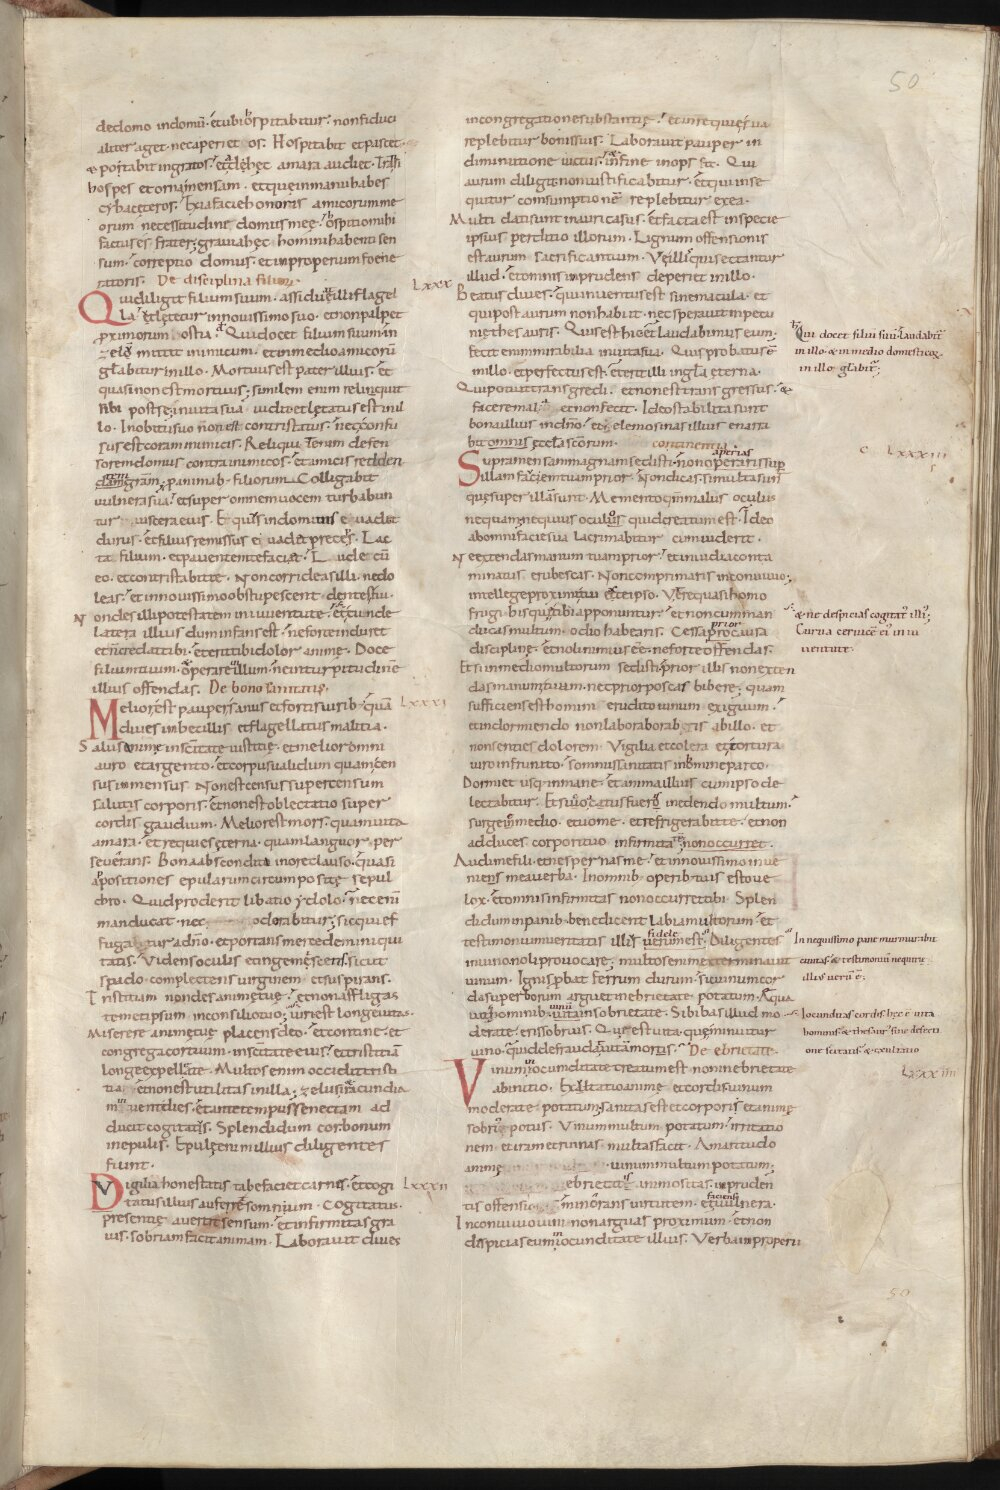 50
de domo in domũ · et ubi hospitabitur · non fiduci
aliter aget · nec aperiet os · Hospitabit et pascet
& potabit ingratos · et adhęc amara audiet · Transi
hospes et orna mensam · et quę in manu habes
ciba cęteros · Exi a facie honoris amicorum me
orum necessitudine domus meę · hospitio mihi
factus est frater · grauia hęc homini habenti sen
sum · correptio domus · et improperium foene
ratoris · De disciplina filiorum
Qui diligit filium suum · assiduat illi flagel
la · et lętetur in nouissimo suo · et non palpet
proximorum ostia · Qui docet filium suum · in
zelũ mittit inimicum · et in medio amicorũ
gla͂bitur in illo · Mortuus est pater illius · et
quasi non est mortuus · similem enim reliquit
sibi post se · in uita sua uidit et lętatus est in il
lo · In obitu suo non est contristatus · nec confu
sus est coram inimicis · Reliquit enim defen
sorem domus contra inimicos · et amicis redden
tem gratiam · pro animabꝫ filiorum colligabit
uulnera sua · et super omnem uocem turbabun
tur uiscera eius · Equus indomitus euadit
durus · et filius remissus euadet preceps · Lac
ta filium · et pauentem te faciet · Lude cũ
eo · et contristabit te · Non corrideas illi · ne do
leas · et in nouissimo obstupescent dentes tui ·
Non des illi potestatem in iuuentute · et tunde
latera illius dum infans est · ne forte induret
et non credat tibi · et erit tibi dolor animę · Doce
filium tuum · & operare in illum · ne in turpitudinẽ
illius offendas · De bono sanitatis ·
Melior est pauper sanus et fortis uiribꝫ · quã
diues imbecillis et flagellatus malitia ·
Salus animę in scitate iustitię · et melior omni
auro et argento · et corpus ualidum quam cen
sus immensus · Non est census super censum
salutis corporis · et non est oblectatio super
cordis gaudium · Melior est mors · quam uita
amara · et requies ęterna · quam languor per
seuerans · Bona abscondita in ore clauso · quasi
appositiones epularum circumpositę sepul
chro · Quid proderit libatio ydolo · nec enim
manducat · nec odorabitur · sic qui ef
fugatur a dño · et portans mercedem iniqui
tatis · Videns oculis et ingemescens · sicut
spado complectens uirginem et suspirans ·
Tristitiam non des animę tuę · et non affligas
temetipsum in consilio tuo · uiri est longeuitas
Miserere animę tuę placens deo · et contine · et
congrega cor tuum · in scitate eius · et tristitiã
longe expelle a te · Multos enim occidit tristi
tia · et non est utilitas in illa · zelus et iracundia
minuent dies · et ante tempus senectam ad
ducit cogitatus · Splendidum cor bonum
in epulis · Epulę enim illius diligentes
fiunt ·
Vigilia honestatis tabefaciet carnis · et cogi
tatus illius auferet somnium · Cogitatus
presentię auertit sensum · et infirmitas gra
uis · sobriam facit animam · Laborauit diues
Lxxx
Lxxxi
Lxxxii
in congregatione substantię · et in requie sua
replebitur bonis suis · Laborauit pauper in
diminutione uictus · & in fine inops fit · Qui
aurum diligit · non iustificabitur · et qui inse
quitur consumptionẽ replebitur ex ea ·
Multi dati sunt in auri casus · et facta est in specie
ipsius perditio illorum · Lignum offensionis
est aurum sacrificantium · Vę illis qui sectantur
illud · et omnis imprudens deperiet in illo ·
Beatus diues · qui inuentus est sine macula · et
qui post aurum non habiit · nec sperauit in pecu
nię thesauris · Quis est hic · et laudabimus eum ·
fecit enim mirabilia in uita sua · Qui probatus ẽ
in illo · et perfectus est · et erit illi in gla ęterna ·
Qui potuit transgredi · et non est transgressus · &
facere mala · et non fecit · Ideo stabilita sunt
bona illius in dño · et elemosinas illius enarra
bit omnis ęcclesia scorum · continentia
Supra mensam magnam sedisti · non aperias sup
illam faucem tuam prior · Non dicas · si multa sunt
quę super illam sunt · Memento qm malus oculus
nequam · nequius oculo quid creatum est · Ideo
ab omni facie sua lacrimabitur cum uiderit ·
Ne extendas manum tuam prior · et inuidia conta
minatus erubescas · Non comprimaris in conuiuio ·
intellege proximi tui ex te ipso · Vtere quasi homo
frugi · his quę tibi apponuntur · et non cum man
ducas multum · odio habearis · Cessa prior causa
disciplinę · et noli nimius esse · ne forte offendas ·
Et si in medio multorum sedisti · prior illis non exten
das manum tuam · nec prior poscas bibere · quam
sufficiens est homini erudito uinum exiguum ·
et in dormiendo non laborabis ab illo · et
non senties dolorem · Vigilia et colera et tortura
uiro infrunito · somnus sanitatis in homine parco ·
Dormiet usqꝫ in mane · et anima illius cum ipso de
lectabitur · Et si coactus fueris in edendo multum ·
surge e medio · et uome · et refrigerabit te · et non
adduces corpori tuo infirmitatem non occurret ·
Audi me fili · et ne spernas me · et in nouissimo inue
nies mea uerba · In omnibꝫ operibꝫ tuis esto ue
lox · et omnis infirmitas non occurret tibi · Splen
didum in panibꝫ benedicent labia multorum · et
testimonium ueritatis illius fidele · Diligentes
in uino noli prouocare · multos enim exterminauit
uinum · Ignis probat ferrum durum · sic uinum cor
da superborum arguet in ebrietate potatum · Aequa
uita hominibꝫ · uinũ in sobrietate · Si bibas illud mo
derate · eris sobrius · Quę est uita · quę minuitur
uino · quid defraudat uitam mortis · De ebrietate ·
Vinum in iocunditate creatum est non in ebrietate
ab initio · Exultatio animę et cordis uinum
moderate potatum · sanitas est et corporis et animę
sobrius potus · Vinum multum potatum · irritatio
nem et iram et ruinas multas facit · Amaritudo
animę · uinum multum potatum ·
ebrietatis animositas · impruden
tis offensio · minorans uirtutem · et faciens uulnera ·
In conuiuio uini non arguas proximum · et non
despicias eum in iocunditate illius · Verba improperii
Qui docet filiũ suũ · laudabit̃
in illo · & in medio domesticoꝝ
in illo gla͂bit̃ ·
c Lxxxiii
& ne despicias cogitat̃ illi ·
Curua ceruicẽ ei in iu
uentute ·
In nequissimo pane murmurabit
ciuitas · & testimoniũ nequitię
illius uerũ ẽ ·
Iocunditas cordis hęc ẽ uita
hominis · & thesaur̃ sine defecti
one scitatis · & exultatio
Lxxxiiii
50